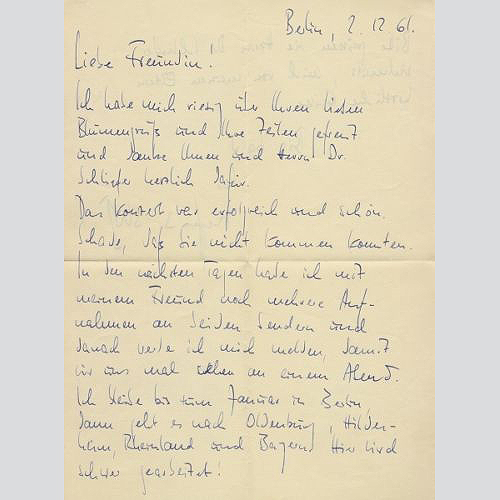 Berlin, 2. 12. 61.
Liebe Freundin!
Ich habe mich riesig über Ihren lieben
Blumengruß und Ihre Zeilen gefreut
und danke Ihnen und Herrn Dr.
Schliefer herzlich dafür.
Das Konzert war erfolgreich und schön.
Schade, daß Sie nicht kommen konnten.
In den nächsten Tagen habe ich mit
meinem Freund noch mehrere Auf-
nahmen an beiden Sendern und
danach werde ich mich melden, damit
wir uns mal sehen an einem Abend.
Ich bleibe bis zum Januar in Berlin,
dann geht es nach Oldenburg, Hildes-
heim, Rheinland und Bayern! Hier wird
schwer gearbeitet!